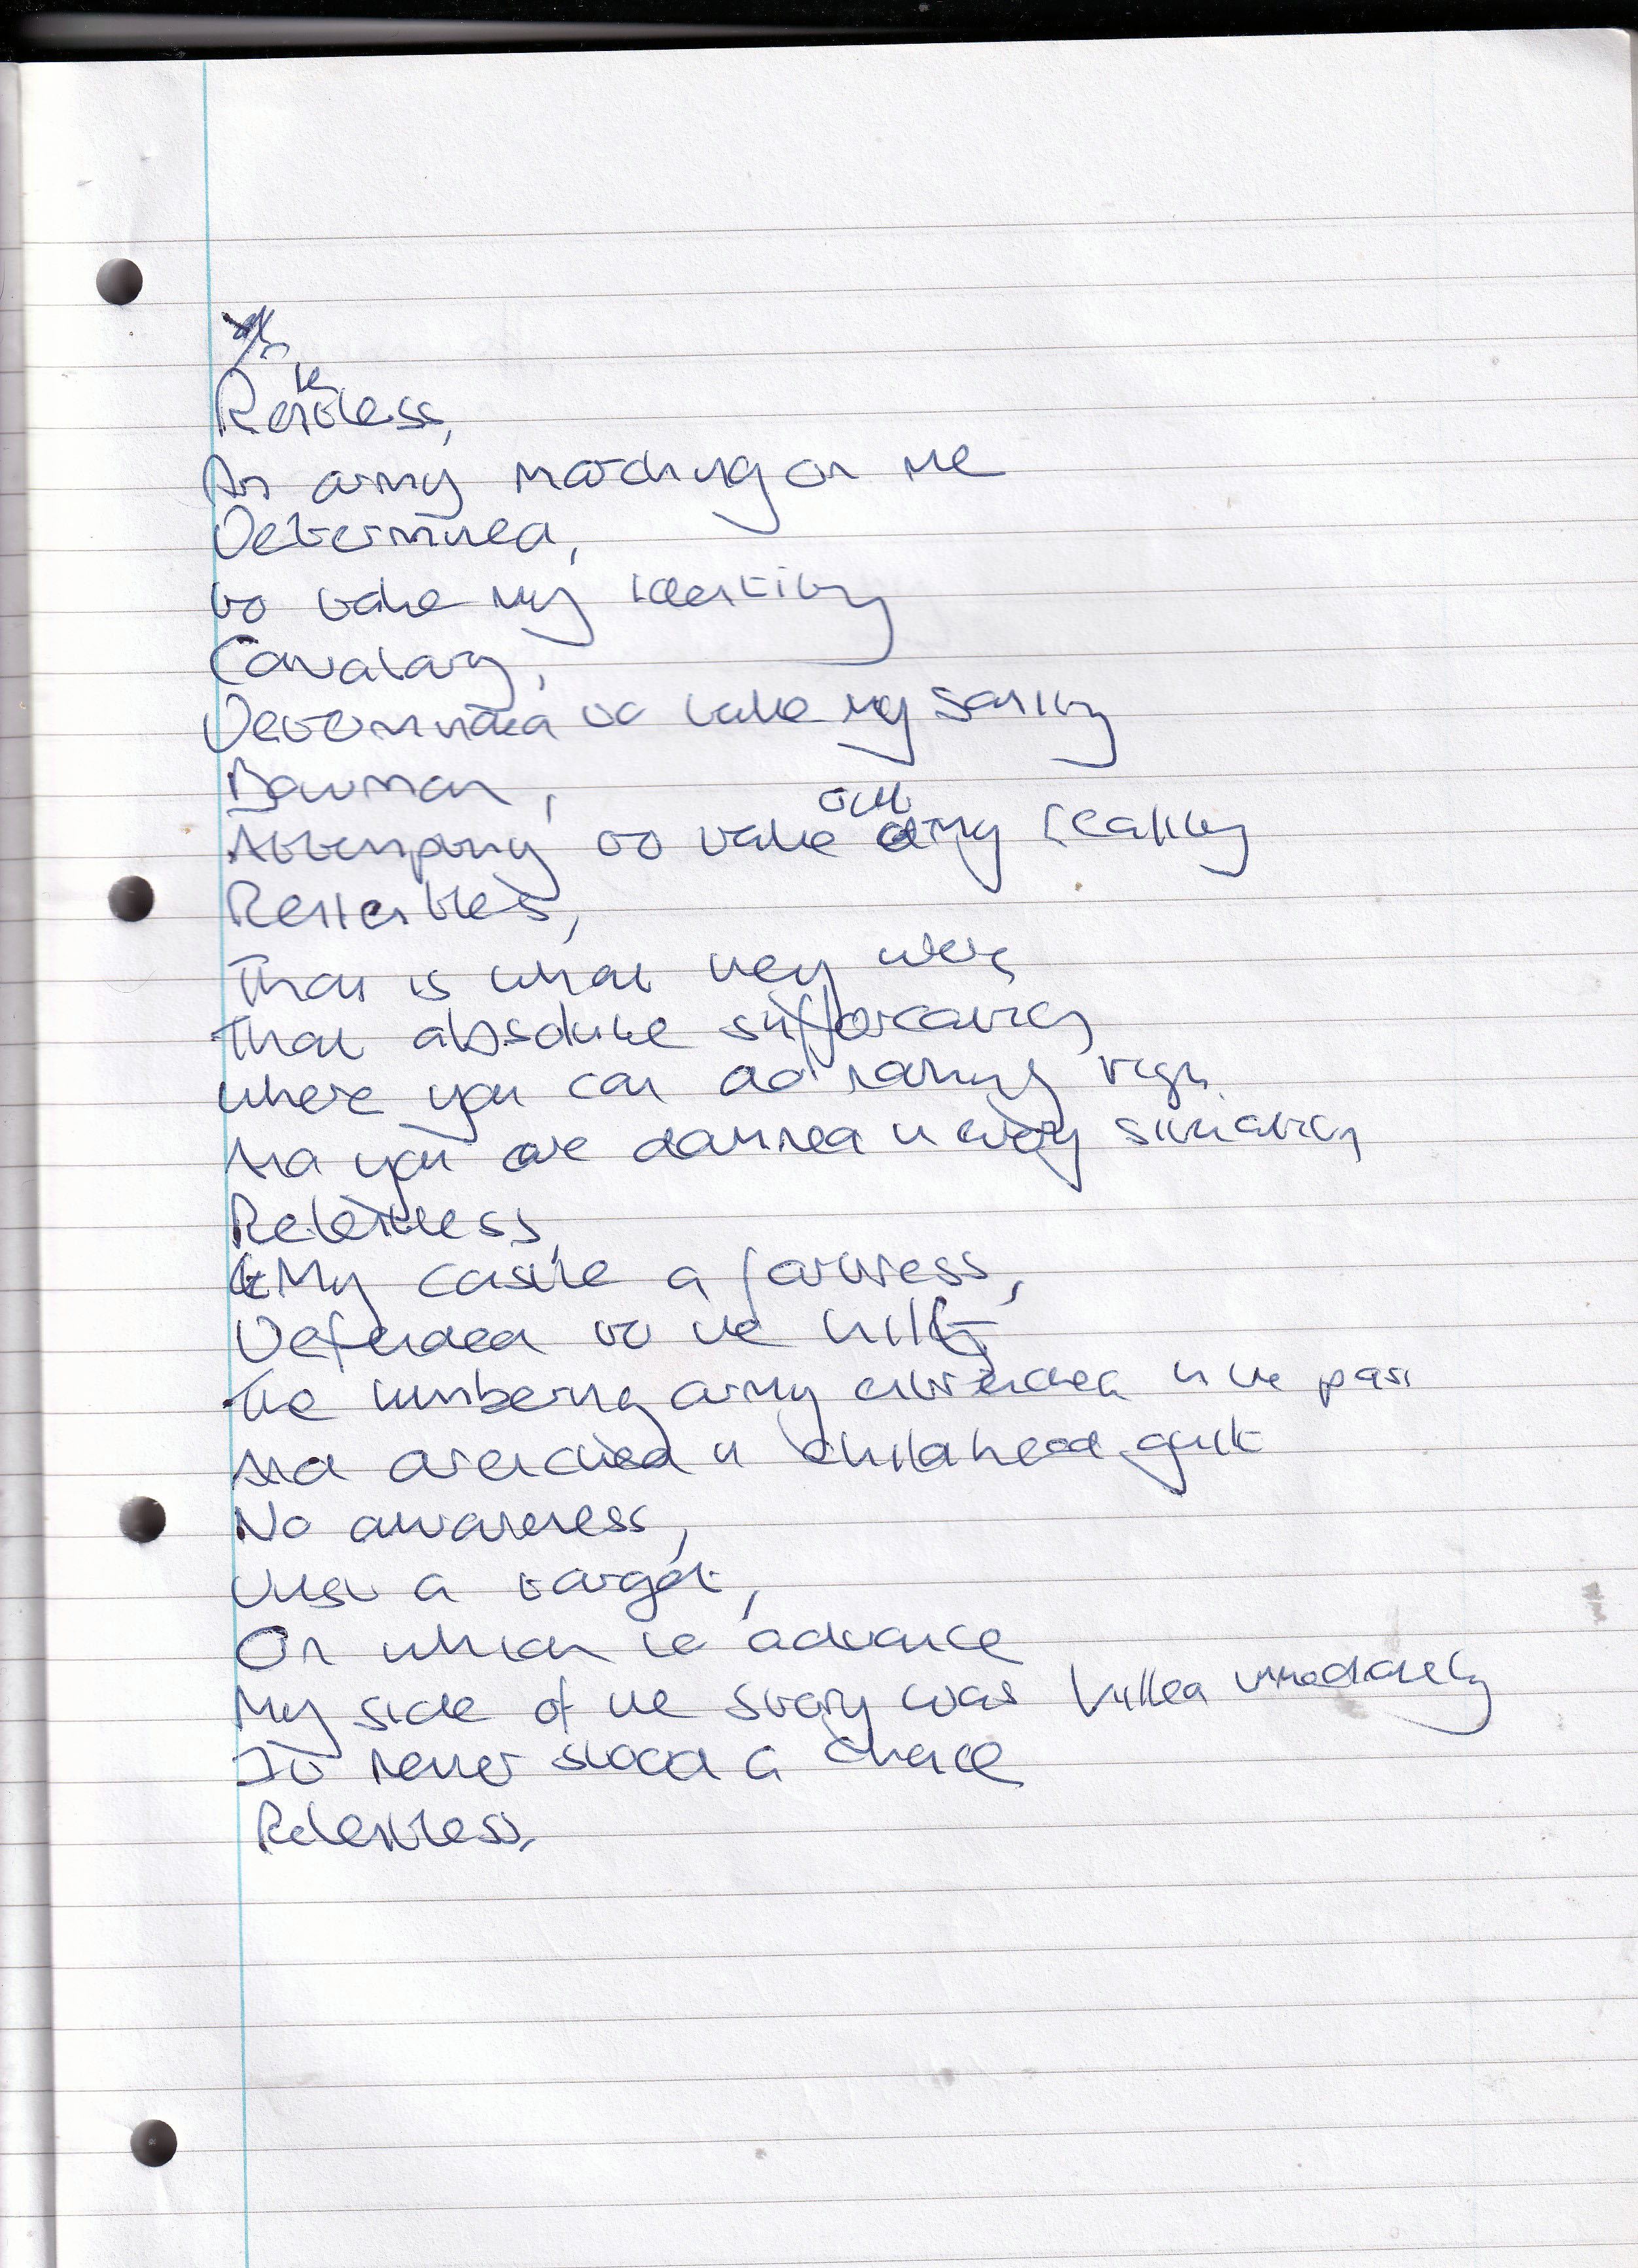 Relentless,
An army marching on me
Determined,
to take my identity
Cavalary,
Determined to take my sanity
Bowman,
Attempting to take out my reality
Relentless,
That is what they were,
That absolute suffocation
where you can do nothing right
And you are damned in every situation
Relentless,
My castle a fortress,
Defended to the hilt
The lumbering army entrenched in the past
And drenched in childhood guilt
No awareness,
Just a target,
On which to advance
My side of the story was killed immediately
It never stood a chance
Relentless.